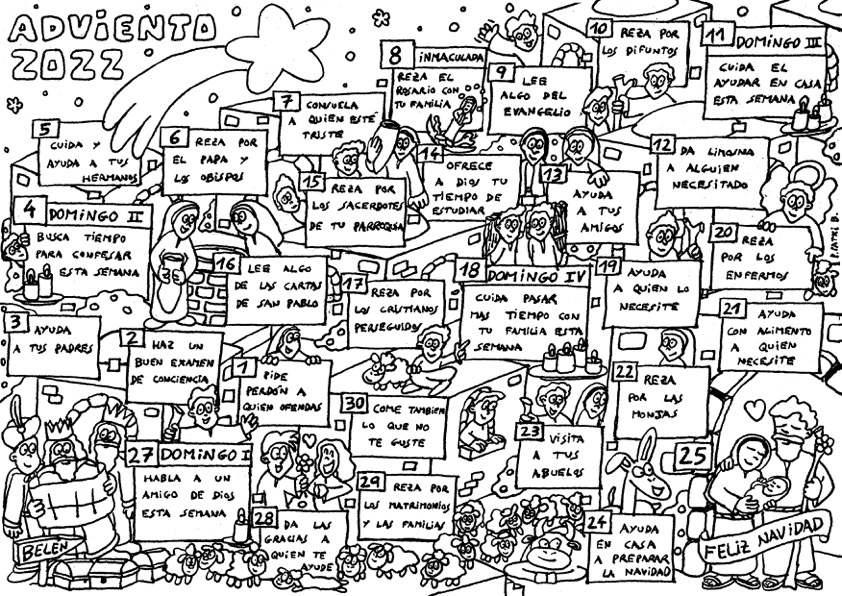 ADVIENTO
2022
27 DOMINGO I
HABLA A UN
AMIGO DE DIOS
ESTA SEMANA
28
DA LAS
GRACIAS A
QUIEN TE
AYUDE
29
REZA POR
LOS MATRIMONIOS
Y LAS FAMILIAS
30
COME TAMBIEN
LO QUE NO
TE GUSTE
1
PIDE
PERDÓN A
QUIEN OFENDAS
2
HAZ UN
BUEN EXAMEN
DE CONCIENCIA
3
AYUDA
A TUS PADRES
4 DOMINGO II
BUSCA TIEMPO
PARA CONFESAR
ESTA SEMANA
5
CUIDA Y
AYUDA A TUS
HERMANOS
6
REZA POR
EL PAPA Y
LOS OBISPOS
7
CONSUELA
A QUIEN ESTÉ
TRISTE
8 INMACULADA
REZA EL
ROSARIO CON
TU FAMILIA
9
LEE
ALGO DEL
EVANGELIO
10
REZA POR
LOS DIFUNTOS
11 DOMINGO III
CUIDA EL
AYUDAR EN CASA
ESTA SEMANA
12
DA LIMOSNA
A ALGUIEN
NECESITADO
13
AYUDA
A TUS
AMIGOS
14
OFRECE
A DIOS TU
TIEMPO DE
ESTUDIAR
15
REZA POR
LOS SACERDOTES
DE TU PARROQUIA
16
LEE ALGO
DE LAS CARTAS
DE SAN PABLO
17
REZA POR
LOS CRISTIANOS
PERSEGUIDOS
18
DOMINGO IV
CUIDA PASAR
MAS TIEMPO CON
TU FAMILIA ESTA
SEMANA
19
AYUDA
A QUIEN LO
NECESITE
20
REZA
POR LOS
ENFERMOS
21
AYUDA
CON ALIMENTO
A QUIEN
NECESITE
22
REZA
POR LAS
MONJAS
23
VISITA
A TUS
ABUELOS
24
AYUDA
EN CASA
A PREPARAR
LA NAVIDAD
25
FELIZ NAVIDAD
BELÉN